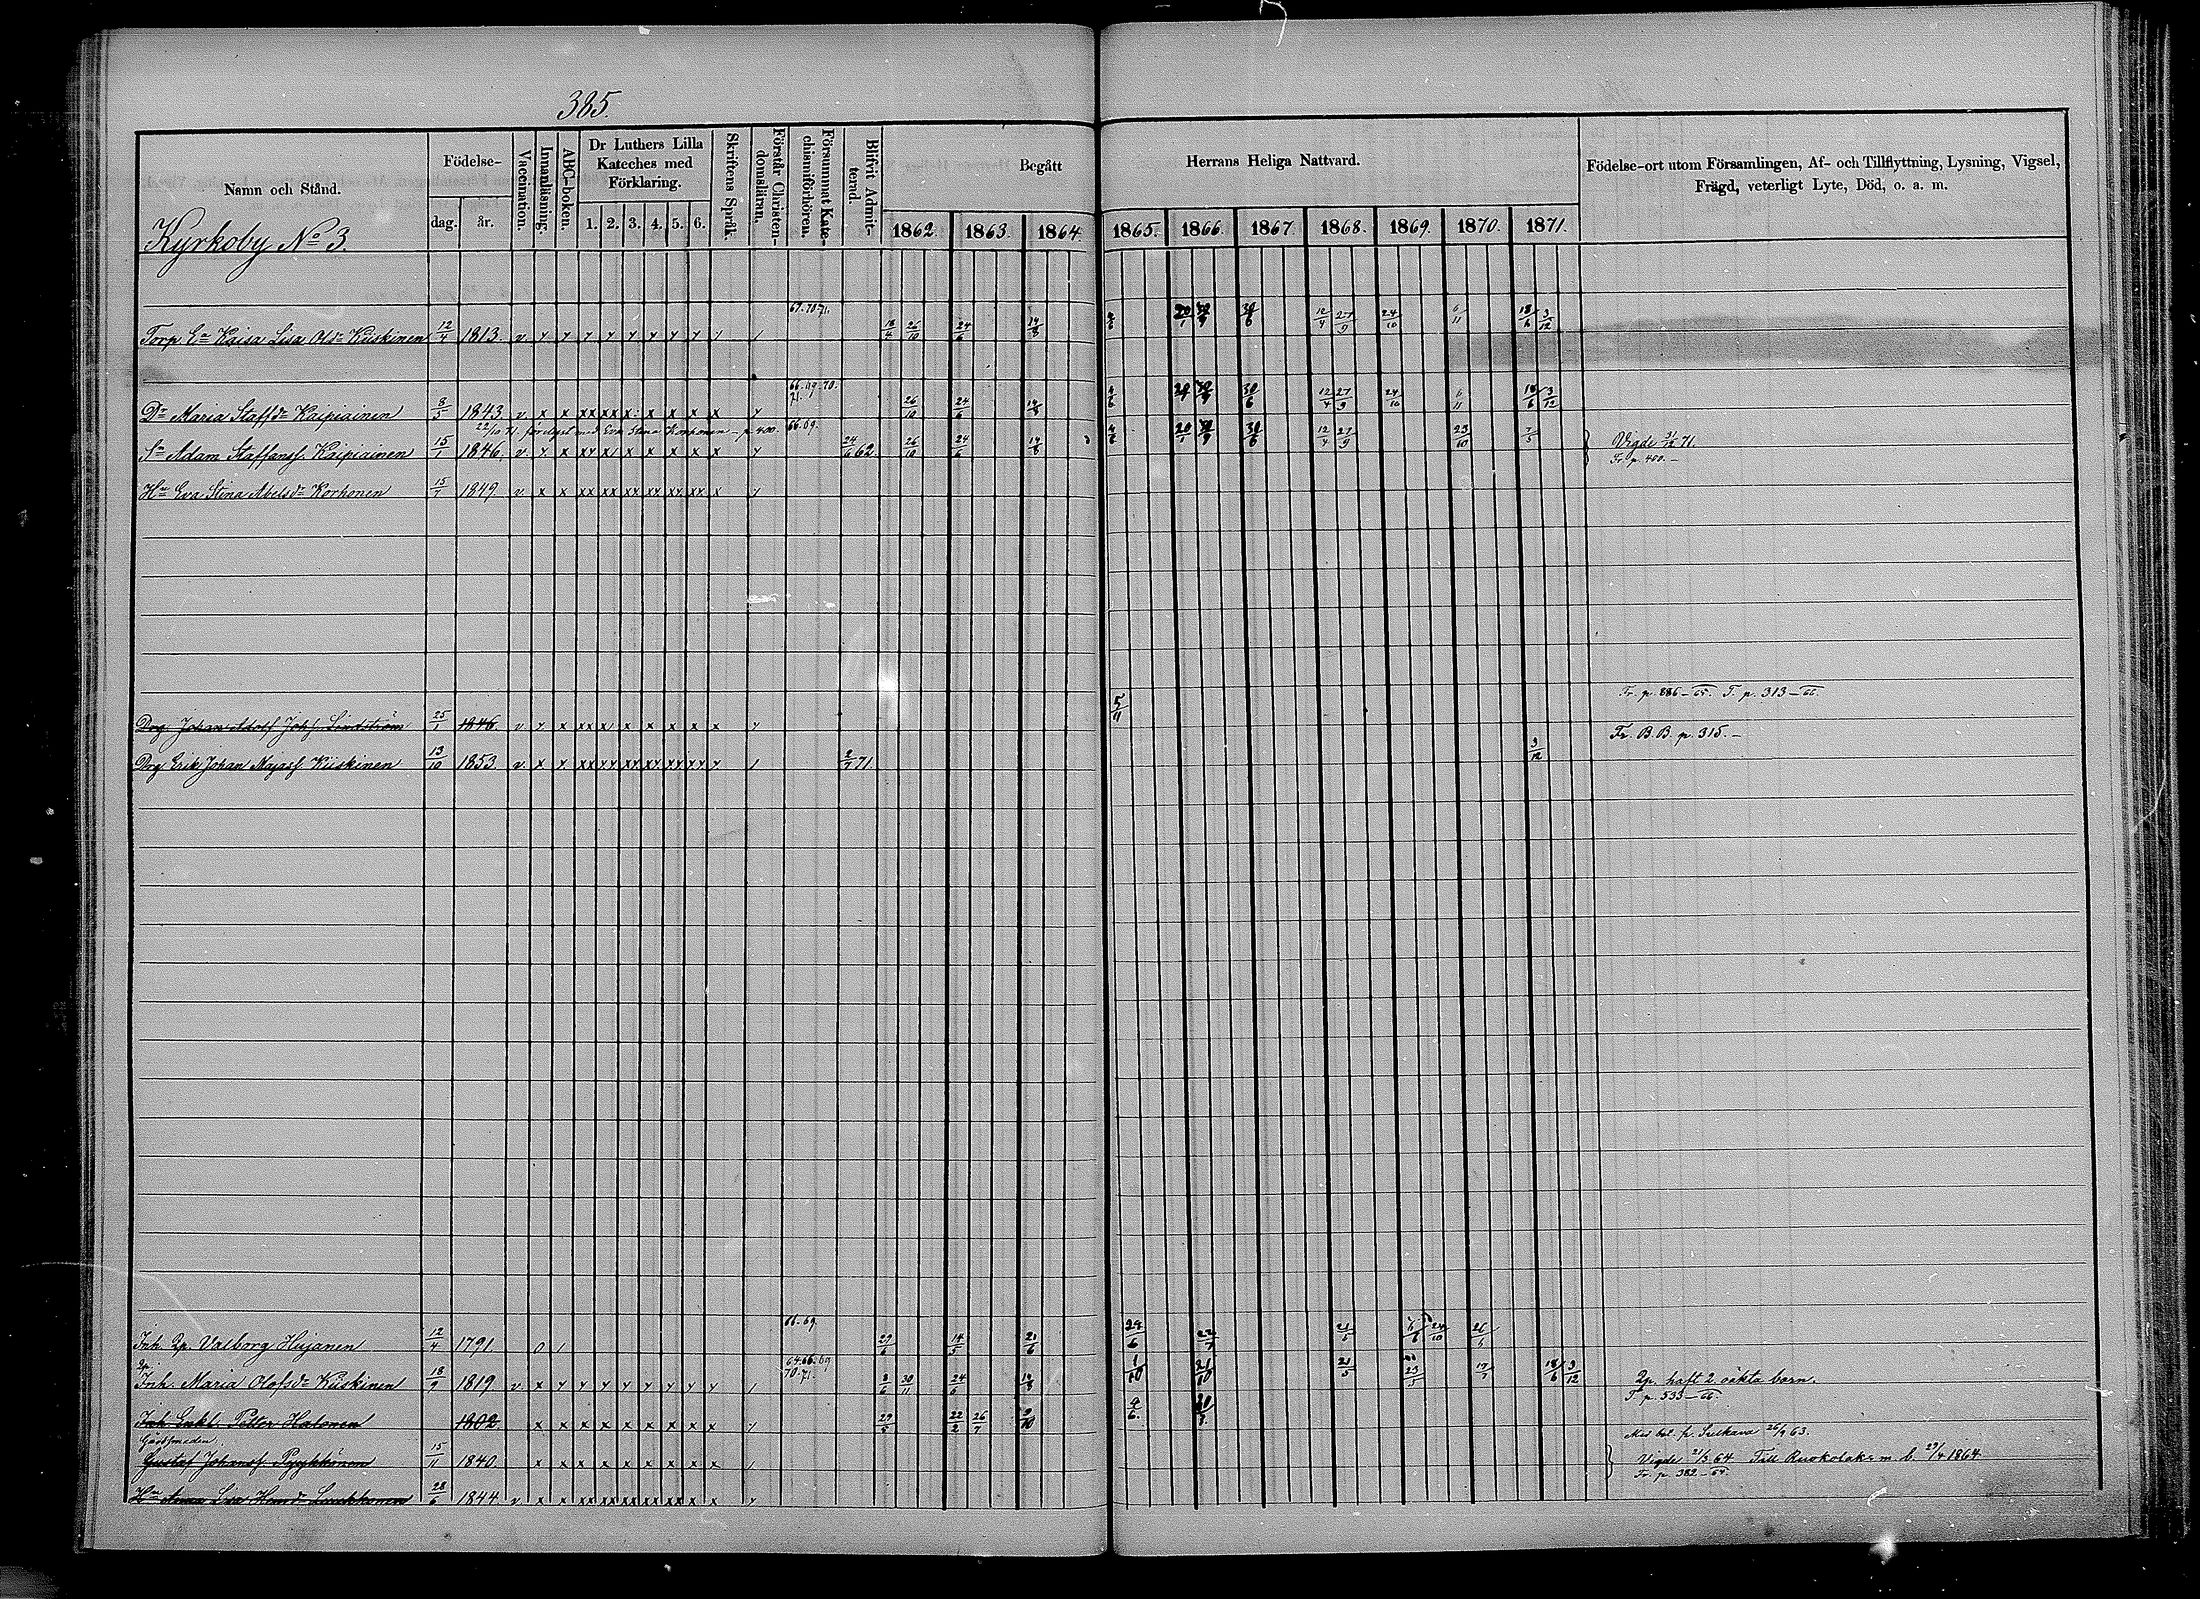 385.
Namn och Stånd.
Kyrkoby No 3.
Födelse-
dag. år.
Vaccination.
Innanläsning.
ABC-boken.
Dr Luthers Lilla
Kateches med
Förklaring.
1. 2. 3. 4. 5. 6.
Skriftens Språk.
Förstår Christen-
domsläran.
Försummat Kate-
chismiförhören.
Blifvit Admit-
terad.
Begått Herrans Heliga Nattvard.
1862. 1863. 1864. 1865. 1866. 1867. 1868. 1869. 1870. 1871.
Födelse-ort utom Församlingen, Af- och Tillflyttning, Lysning, Vigsel,
Frägd, veterligt Lyte, Död, o. a. m.
67. 70 71.
Torp. Ea Kaisa Lisa Olsdr Kiiskinen 12/4 1813. v 26/10 24/6 14/8 12/4 27/9 24/10 6/11 18/6 3/12
66. 69. 70.
71.
Dr Maria Staffdr Kaipiainen 8/5 1843. v x x xx xx x x x x x 26/10 24/6 14/8 4/6 30/6 12/4 27/9 24/10 6/11 18/6 3/12
22/10 71 förelyst med Eva Stina Korhonen – p 400. 66. 69.
Sn Adam Staffanss. Kaipiainen 15/1 1846. v 24/6 62. 26/10 24/6 14/8 4/6 30/6 12/4 27/9 23/10 7/5
Vigde 3/12 71.
Fr. p. 400. –
Hu Eva Stina Abelsdr Korhonen 15/7 1849. v x x xx xx xx xx xx xx x
Drg Johan Adolf Johs. Lindström 25/1 1846. v 5/11 Fr. p. 886–65. T. p. 313–66.
Fr. B. B. p. 315. –
Drg Erik Johan Majass Kiiskinen 13/10 1853. v 2/7 71. 3/12
66. 69.
Inh. Qp. Valborg Hujanen 12/4 1791. 29/6 14/5 21/6 24/6 22/7 21/5 24/10 26/5
64. 66. 69
70. 71.
Qp.
Inh. Maria Olofsdr Kiiskinen 18/9 1819. v 8/6 30/11 24/6 14/8 1/10 21/10 21/5 23/5 17/7 18/6 3/12 Qp. haft 2 oäkta barn.
T. p. 535–66.
Inh. Enkl. Petter Hatonen 1802. 29/5 22/2 26/7 9/10 4/6.
Gästsmeden
Med bet. fr. Sulkava 26/9 63.
Gustaf Johanss Pyykkönen 15/11 1840. x x x x x x x x x
Vigde 21/5 64 Till Ruokolaks m. b. 1864
Fr. p. 382–64.
Hu Anna Lisa Hemdr Luukkonen 28/6 1844. v x x xx xx xx xx xx xx x